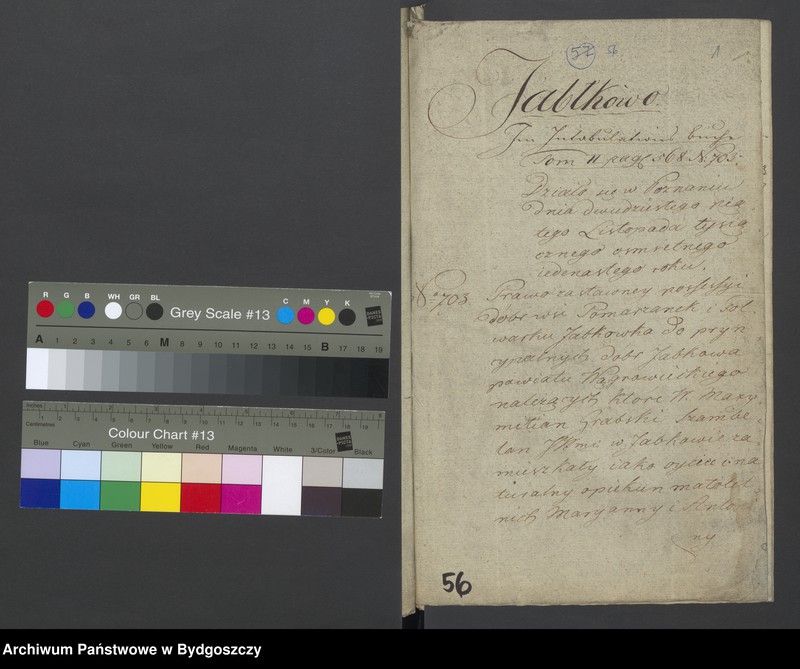 52 56 1
Jabłkowo.
Im Intabulations buche
Tom II pag 568 N. 703.
Działo się w Poznaniu
dnia dwudziestego pią
tego Listopada tysią
cznego osmsetnego
iedenastego roku.
No 703 Prawo zastawney possessyi
dobr wsi Pomarzanek i Fol
warku Jabkowka do pryn
cypalnych dobr Jabkowa
powiatu Wągrowieckiego
należących ktore W. Maxy
milian Grabski Szambe
lan JKmci w Jabkowie za
mieszkały iako oyciec i na
turalny opiekun małolet
nich Maryanny i Antoni
ny
56
R G B WH GR BL Grey Scale #13 C M Y K
DANES PICTA
A 1 2 3 4 5 6 M 8 9 10 11 12 13 14 15 B 17 18 19
Inches
Centimetres
Colour Chart #13
DANES PICTA
Blue Cyan Green Yellow Red Magenta White 3/Color Black
Archiwum Państwowe w Bydgoszczy